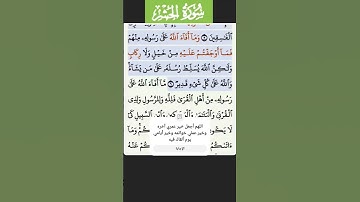 سورة الحشر
الْفَٰسِقِينَ ۝ وَمَا أَفَاءَ اللَّهُ عَلَىٰ رَسُولِهِ مِنْهُمْ
فَمَا أَوْجَفْتُمْ عَلَيْهِ مِنْ خَيْلٍ وَلَا رِكَابٍ
وَلَٰكِنَّ اللَّهَ يُسَلِّطُ رُسُلَهُ عَلَىٰ مَن يَشَاءُ
وَاللَّهُ عَلَىٰ كُلِّ شَيْءٍ قَدِيرٌ ۝ مَّا أَفَاءَ اللَّهُ عَلَىٰ
رَسُولِهِ مِنْ أَهْلِ الْقُرَىٰ فَلِلَّهِ وَلِلرَّسُولِ وَلِذِي
الْقُرْبَىٰ وَالْيَتَٰمَىٰ السَّبِيلِ كَيْ
لَا يَكُو كُمْ وَمَا
ءَاتَىٰكُمُ كُمْ عَنْهُ
اللهم أجعل خير عمري آخره
وخير عملي خواتمه وخير أيامي
يوم ألقاك فيه